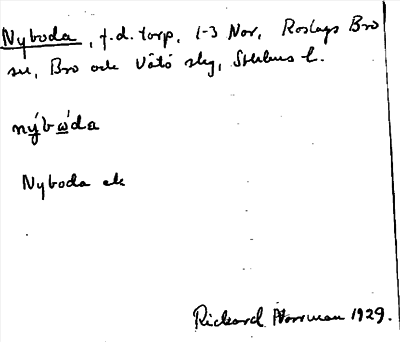 Nyboda, f.d. torp, 1-3 Nor, Roslags Bro
sn, Bro och Vätö skg, Sthlms l.
nýbὼda
Nyboda ek
Rickard Norrman 1929.